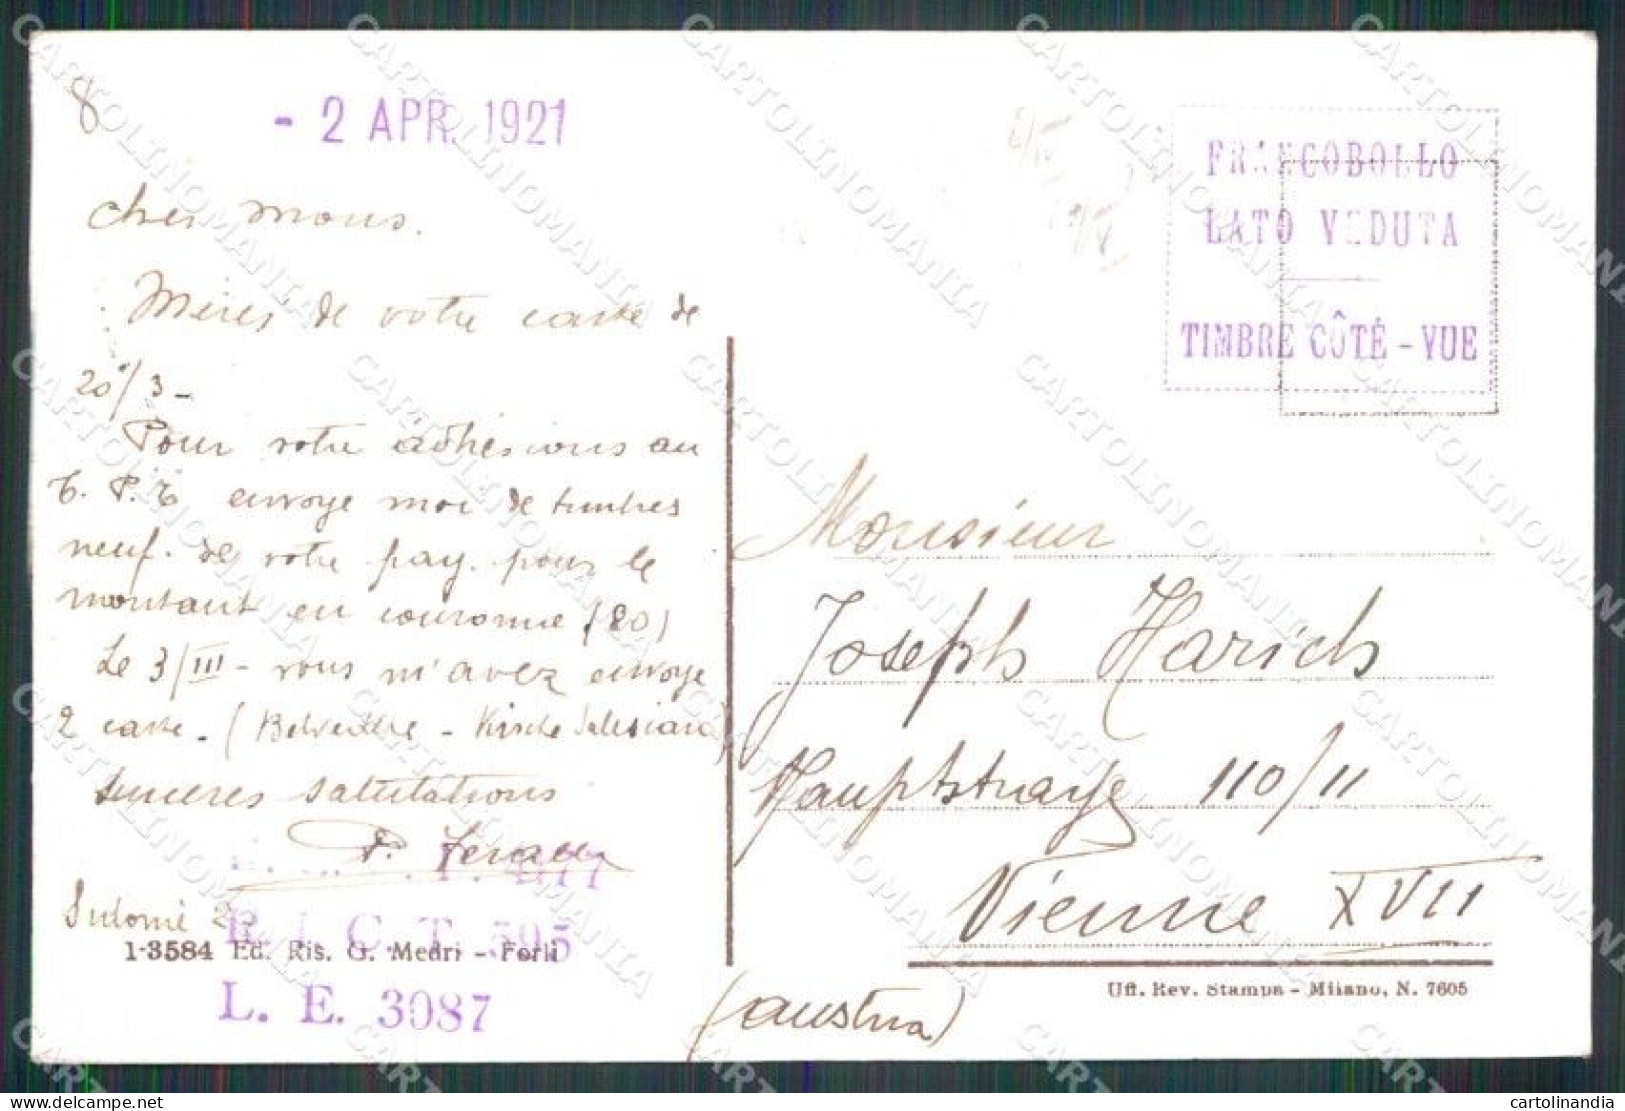 8
- 2 APR. 1921
cher mons.
Merci de votre carte de
20/3 -
Pour votre adhésions au
T. P. T envoye moi de timbres
neuf. de votre pay. pour le
montant en couronne (80)
Le 3/III - vous m'avez envoye
2 carte - (Belvedere - Kirche Salesian)
sinceres salutations
P.
4877
R. I. C. T. 595
1-3584 Ed. Ris. G. Medri - Forlì
L. E. 3087
FRANCOBOLLO
LATO VEDUTA
TIMBRE CÔTÉ - VUE
Monsieur
Joseph Harich
Hauptstrasse 110/11
Vienne XVII
(austria)
Uff. Rev. Stampa - Milano, N. 7605
CARTOLINOMANIA
delcampe.net
cartolinandia